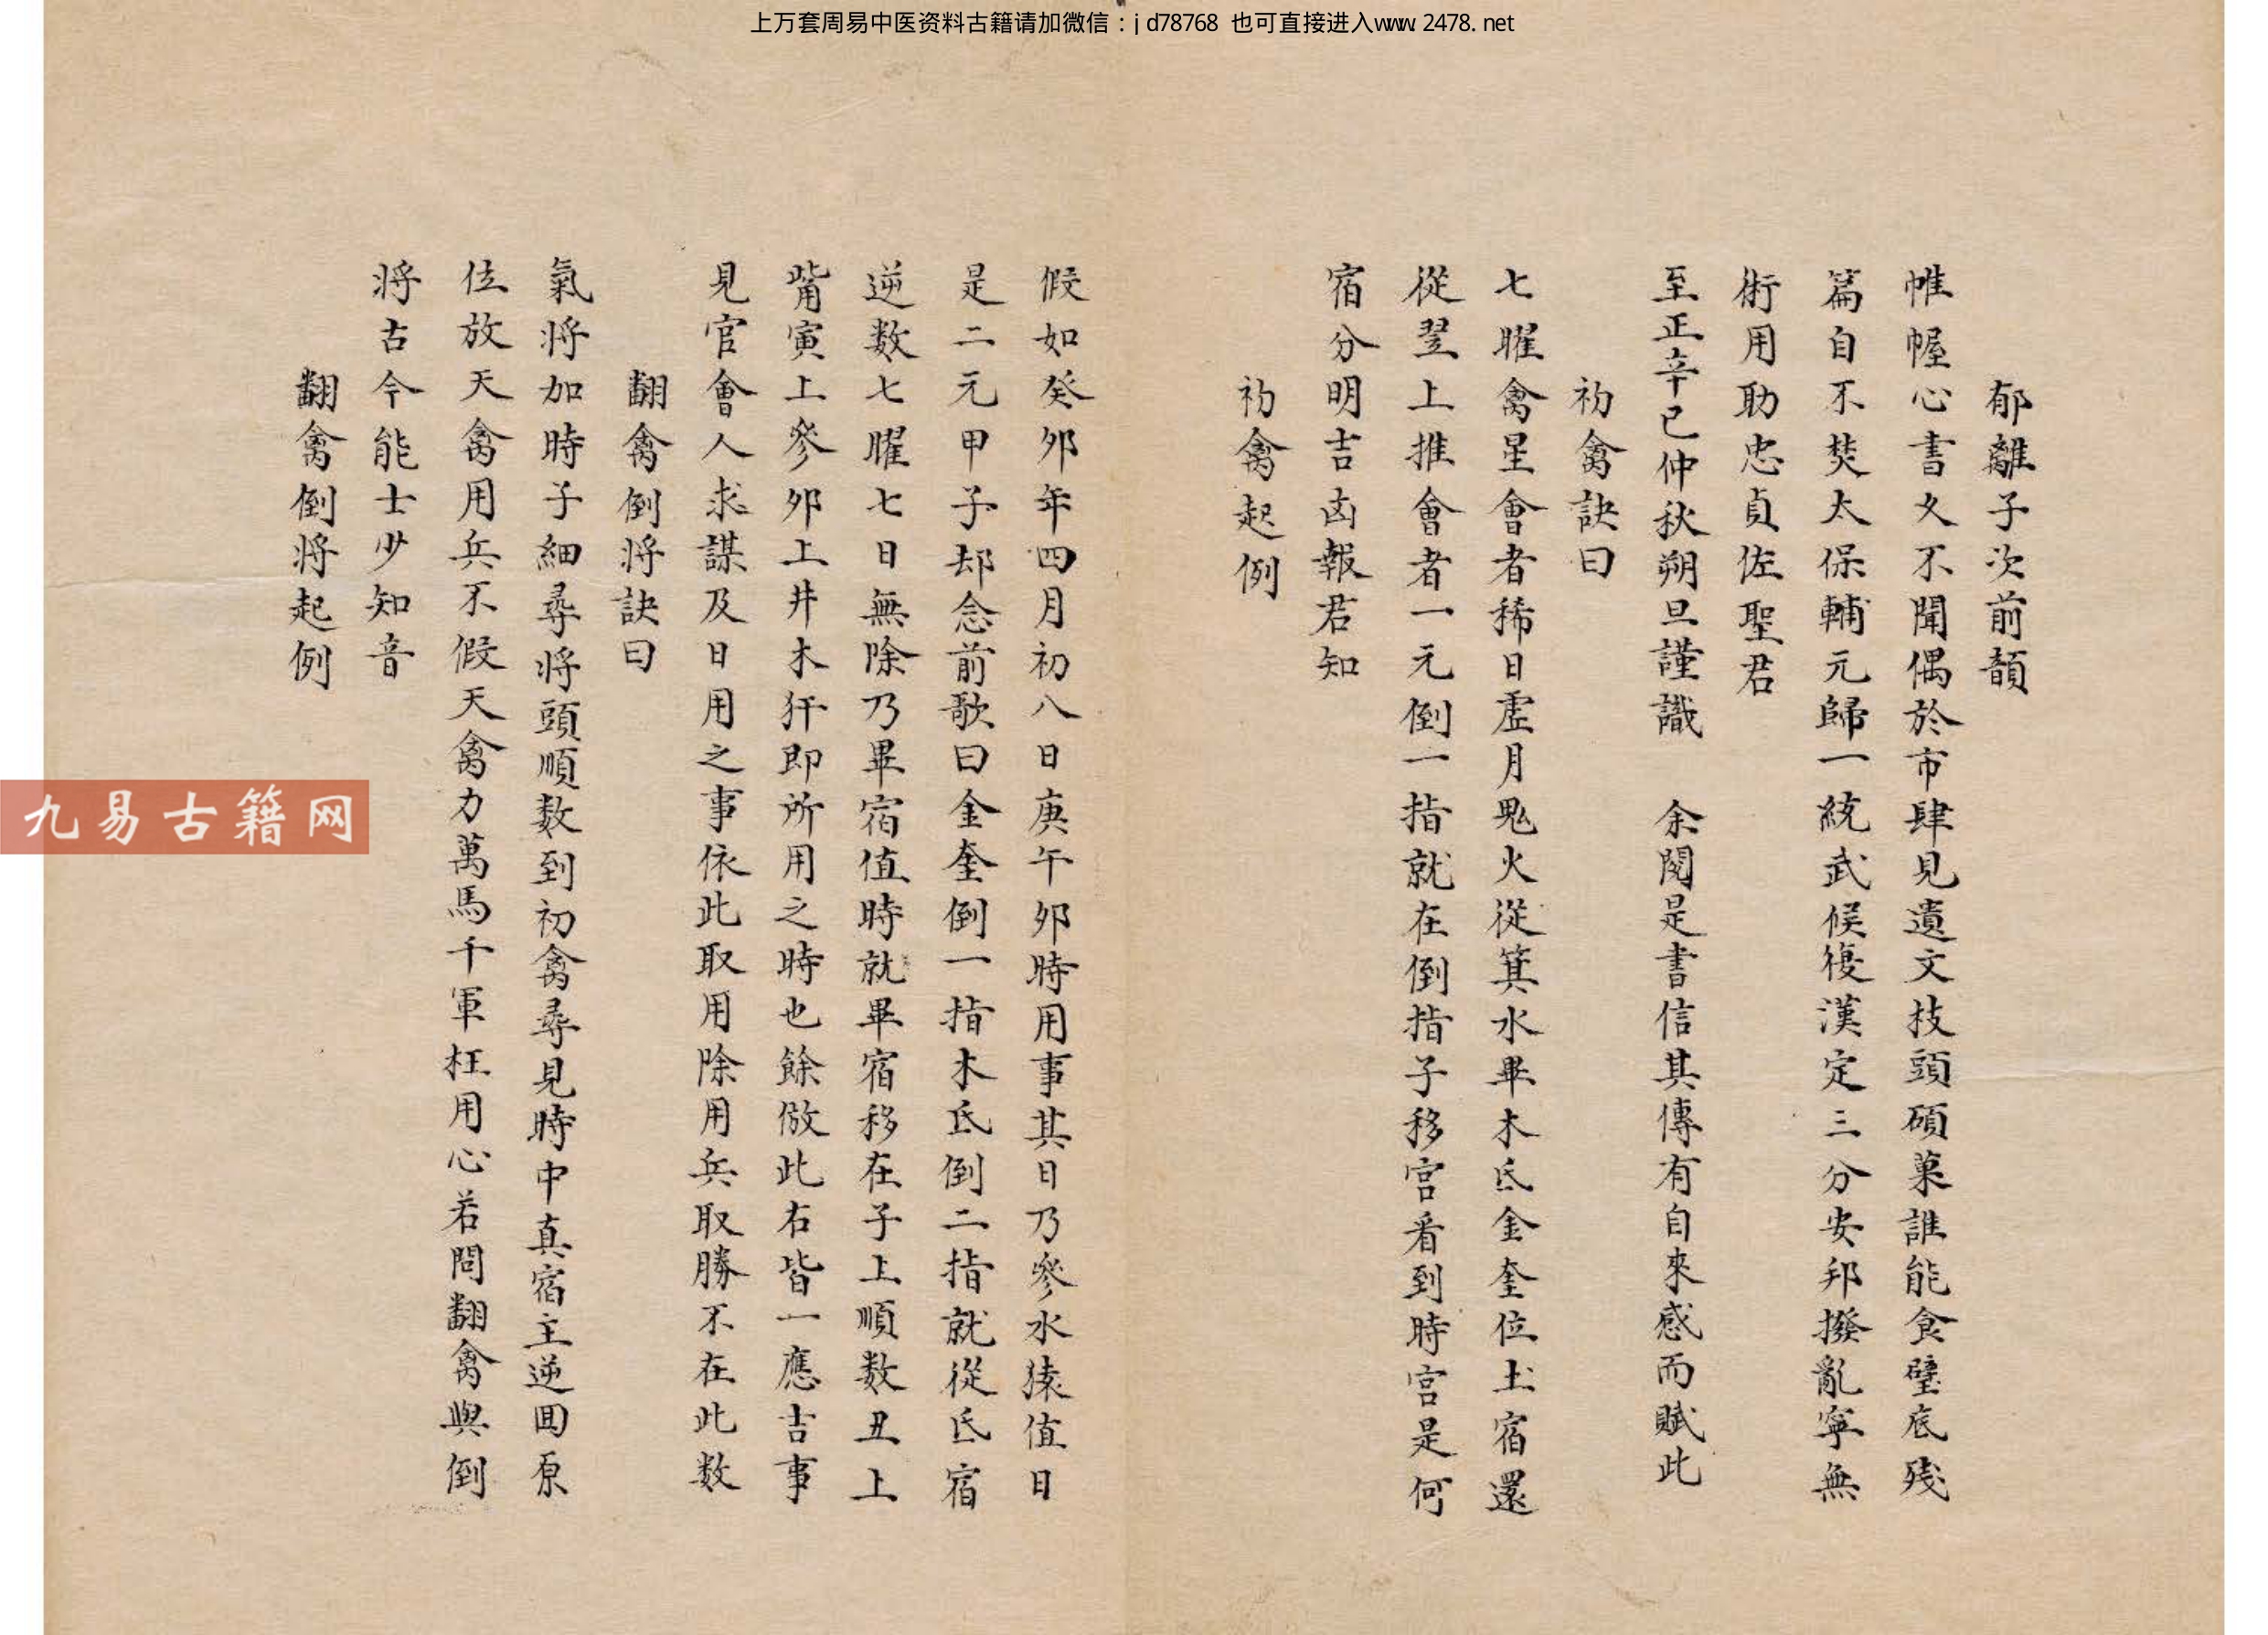 上万套周易中医资料古籍请加微信：jd78768 也可直接进入www.2478.net
郁離子次前韻
帷幄心書久不聞偶於市肆見遺文技頭碩菓誰能食壁底殘
篇自不焚太保輔元歸一統武候復漢定三分安邦撥亂寧無
術用助忠貞佐聖君
至正辛巳仲秋朔旦謹識　余閱是書信其傳有自來感而賦此
初禽訣曰
七曜禽星會者稀日虛月鬼火從箕水畢木氐金奎位土宿還
從翌上推會者一元倒一指就在倒指子移宮看到時宮是何
宿分明吉凶報君知
初禽起例
假如癸卯年四月初八日庚午卯時用事其日乃參水猿值日
是二元甲子却念前歌曰金奎倒一指木氐倒二指就從氐宿
逆数七曜七日無除乃畢宿值時就畢宿移在子上順数丑上
觜寅上參卯上井木犴即所用之時也餘倣此右皆一應吉事
見官會人求謀及日用之事依此取用除用兵取勝不在此数
翻禽倒将訣曰
氣将加時子細尋将頭順数到初禽尋見時中真宿主逆囬原
位放天禽用兵不假天禽力萬馬千軍枉用心若問翻禽與倒
将古今能士少知音
翻禽倒将起例
九易古籍网